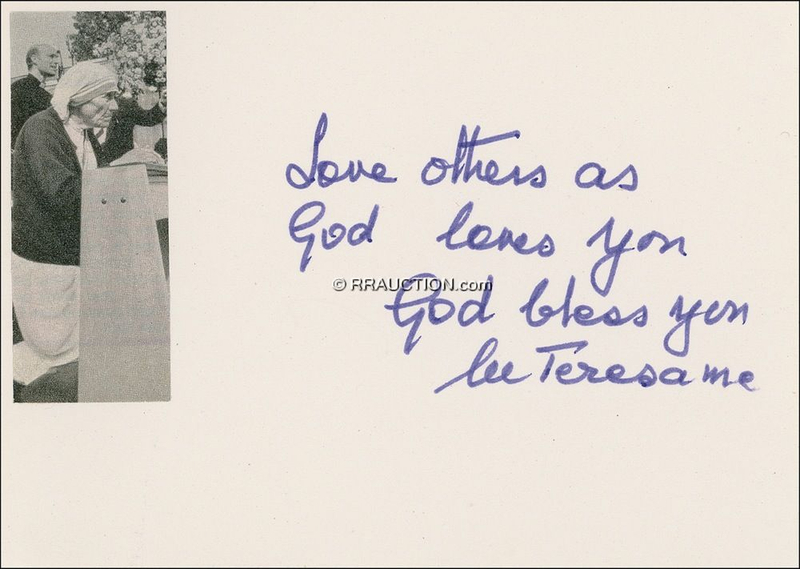 Love others as
God loves you
© RRAUCTION.com
God bless you
lu Teresa mc